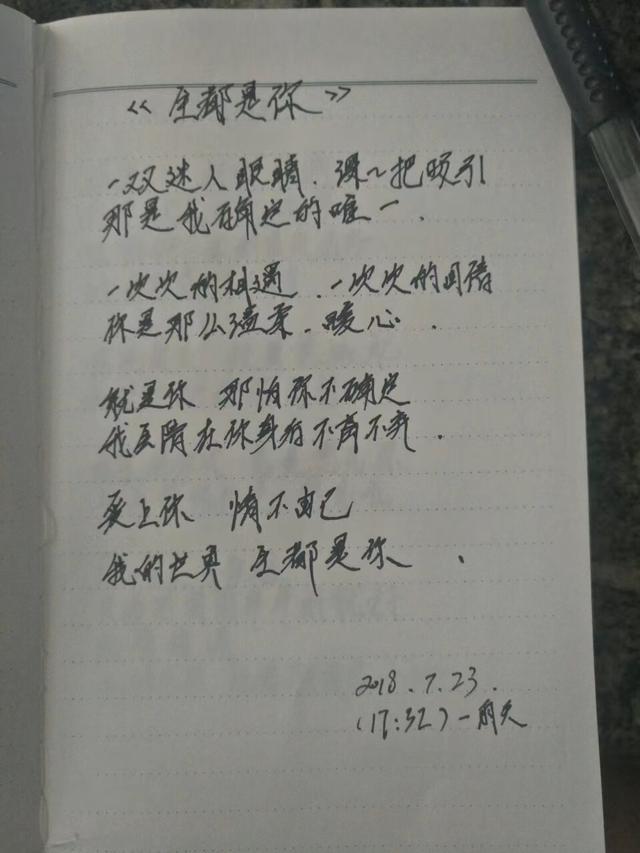 《全都是你》
一双迷人眼睛.深深把吸引
那是我确定的唯一.
一次次的相遇.一次次的回眸
你是那么温柔.暖心.
就是你 那怕你不确定
我至随在你身后不离不弃.
爱上你 情不由己
我的世界 全都是你.
2018.7.23.
(17:32)一雨天